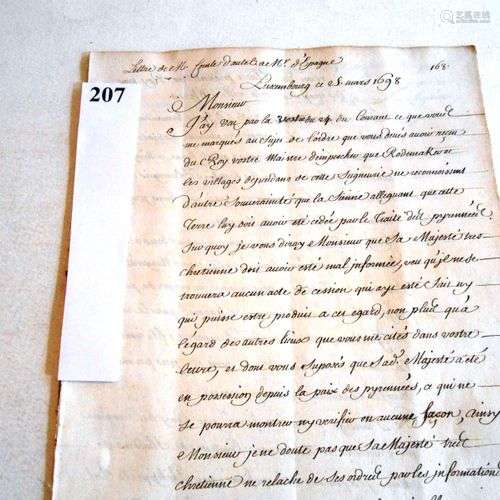 Lettre de Mr. Comte d'autel a Mr. d'Espagne
168.
207
Luxembourg ce 25 mars 1698
Monsieur
J'ay vou par la vostre du 24 du Courant ce que vous
me marqués au sujet de l'ordre que vous devés avoir receu
du Roy vostre Maitre d'empescher que Rodemakeren et
les villages dependans de cette Seigneurie ne reconnoissent
d'autre Souveraineté que la Sienne alleguant que cette
Terre luy doit avoir eté cedée par le Traité des pyrennées
Sur quoy je vous diray Monsieur que Sa Majesté tres
chrêtienne doit avoir esté mal informée, veu qu'il ne se
trouvera aucun acte de cession qui aye esté fait ny
qui puisse estre produit a cet egard, non plus qu'a
l'égard des autres lieux que vous me cités dans vostre
lettre, et dont vous suposés que Sad.e Majesté a été
en possession depuis la paix des pyrennées, ce qui ne
se poura montrer ny verifier en aucune façon, ainsy
Monsieur je ne doute pas que Sa Majesté tres
chretienne ne relache de ses ordres par les information